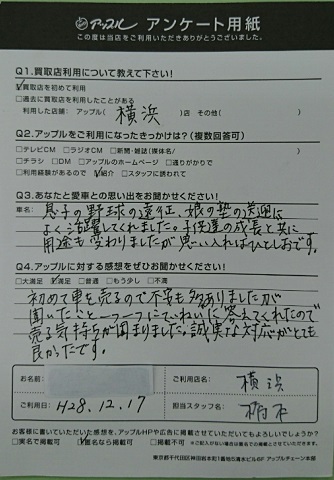 アップル アンケート用紙
この度は当店をご利用いただきありがとうございました。
Q1.買取店利用について教えて下さい!
☑買取店を初めて利用
□過去に買取店を利用したことがある
利用した店舗：アップル( 横浜 )店 その他( )
Q2.アップルをご利用になったきっかけは?(複数回答可)
□テレビCM □ラジオCM □新聞・雑誌(媒体名/ )
□チラシ □DM □アップルのホームページ □通りがかりで
□利用経験があるので ☑紹介 □スタッフに誘われて
Q3.あなたと愛車との思い出をお聞かせください!
車名: 息子の野球の遠征、娘の塾の送迎に
よく活躍してくれました。子供達の成長と共に
用途も変わりましたが思い入れはひとしおです。
Q4.アップルに対する感想をぜひお聞かせください!
□大満足 ☑満足 □普通 □もう少し □不満
初めて車を売るので不安も多々ありましたが
聞いたこと一つ一つにていねいに答えてくれたので
売る気持ちが固まりました。誠実な対応がとても
良かったです。
お名前:
ご利用店名: 横浜
ご利用日: H28.12.17
担当スタッフ名: 柏木
お客様に書いていただいた感想を、アップルHPや広告に掲載させていただいてもよろしいでしょうか?
□実名で掲載可 ☑匿名なら掲載可 □掲載不可 ※ご記入がない場合は匿名での掲載とさせていただきます。